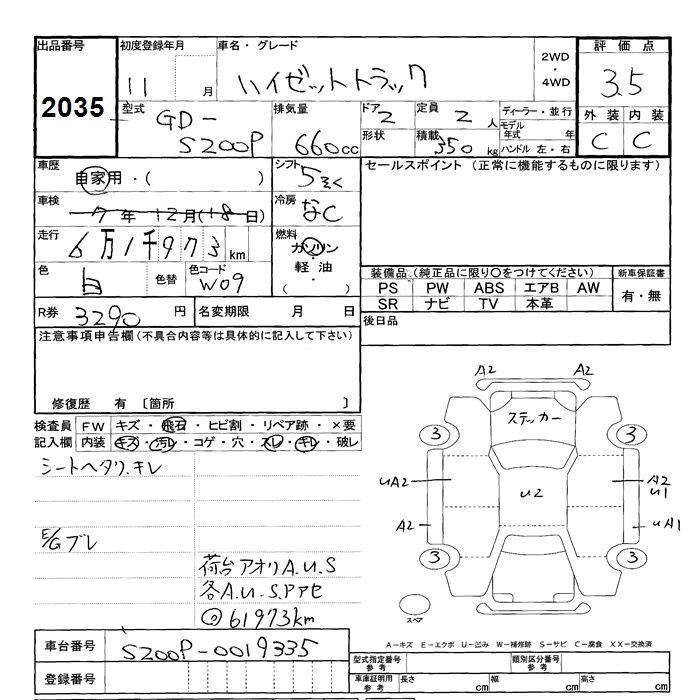 出品番号
2035
初度登録年月
11 月
車名・グレード
ハイゼットトラック
2WD
・
4WD
評価点
3.5
外装 内装
C C
型式
GD-
S200P
排気量
660cc
ドア
2
定員
2人
形状
積載
350kg
ディーラー・並行
モデル年式 年
ハンドル 左・右
車歴
自家用・( )
シフト
5
車検
7年12月(18日)
冷房
なC
走行
6万1千973km
燃料
ガソリン
軽油
( )
色
白
色替
色コード
W09
R券
3290円
名変期限 月 日
セールスポイント (正常に機能するものに限ります)
装備品 (純正品に限り○をつけてください)
新車保証書
PS PW ABS エアB AW
SR ナビ TV 本革
有・無
後日品
注意事項申告欄(不具合内容等は具体的に記入して下さい)
修復歴 有 〔箇所 〕
検査員 FW キズ・飛石・ヒビ割・リペア跡・×要
記入欄 内装 キズ・汚レ・コゲ・穴・スレ・キレ・破レ
シートヘタリ.キレ
E/Gブレ
荷台アオリA.U.S
各A.U.S.Pアセ
◎61973km
A2 A2
ステッカー
3 3
UA2 U2 A2
U1
A2 UA1
3 3
スペア
A-キズ E-エクボ U-凹み W-補修跡 S-サビ C-腐食 XX-交換済
車台番号
S200P-0019335
登録番号
型式指定番号
参考
類別区分番号
参考
車庫証明用
参考
長さ cm 幅 cm 高さ cm